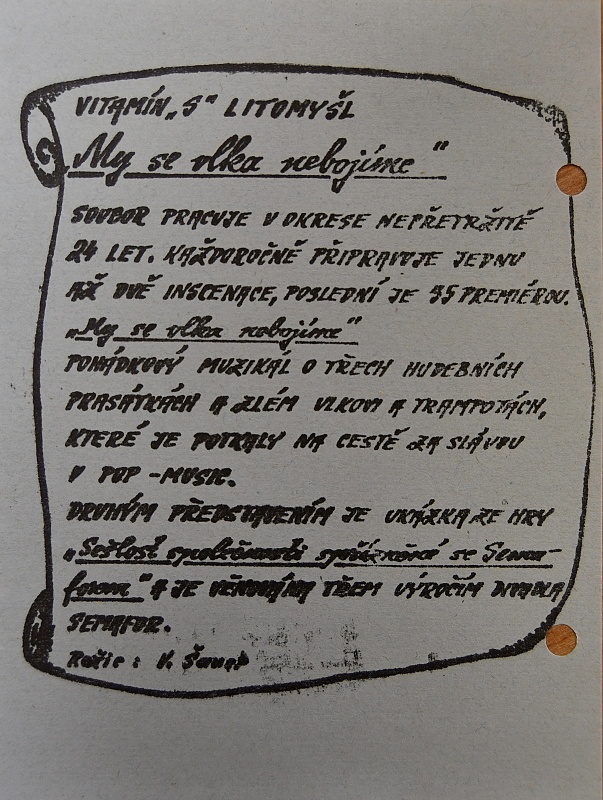 VITAMÍN „S" LITOMYŠL
„My se vlka nebojíme"
SOUBOR PRACUJE V OKRESE NEPŘETRŽITĚ
24 LET. KAŽDOROČNĚ PŘIPRAVUJE JEDNU
AŽ DVĚ INSCENACE, POSLEDNÍ JE 35 PREMIÉROU.
„My se vlka nebojíme"
POHÁDKOVÝ MUZIKÁL O TŘECH HUDEBNÍCH
PRASÁTKÁCH A ZLÉM VLKOVI A TRAMPOTÁCH,
KTERÉ JE POTKALY NA CESTĚ ZA SLÁVOU
V POP-MUSIC.
DRUHÝM PŘEDSTAVENÍM JE UKÁZKA ZE HRY
„Sešlost společnosti spřízněné se Sema-
forem" A JE VĚNOVÁNA TŘEM VÝROČÍM DIVADLA
SEMAFOR.
Režie: V. Šauer